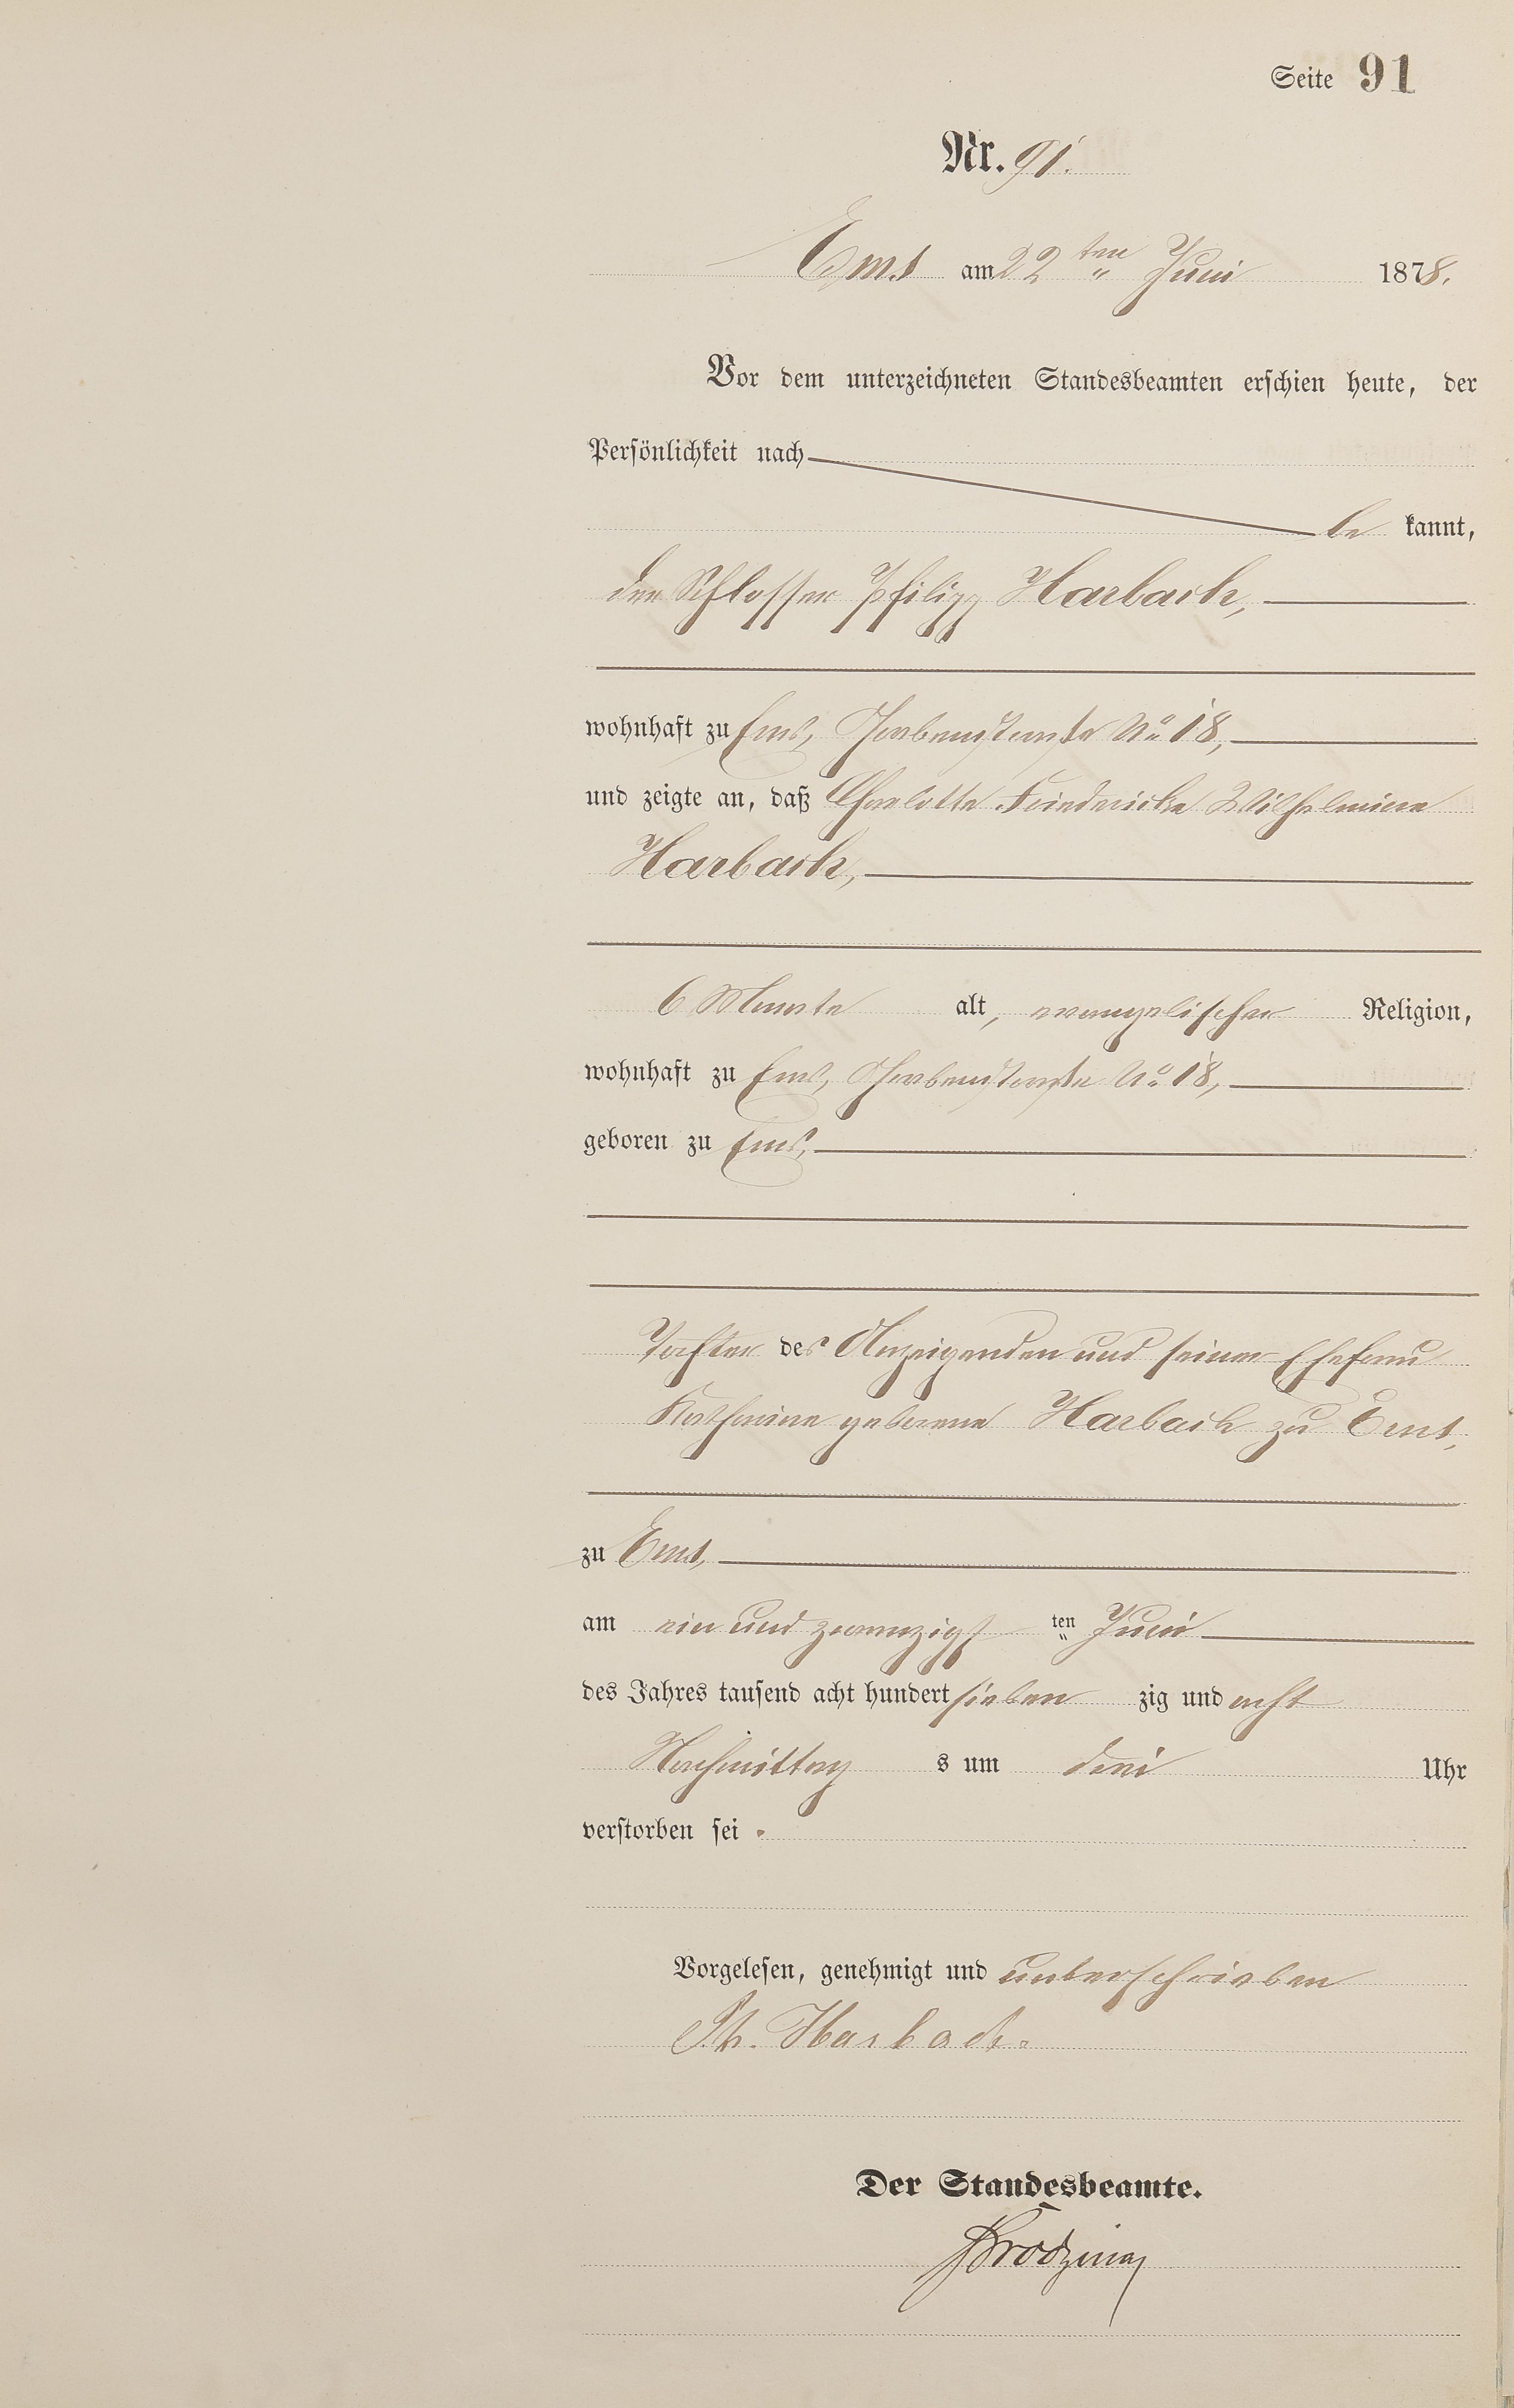 Seite 91
Nr. 91.
Ems am 22ten Juni 1878.
Vor dem unterzeichneten Standesbeamten erschien heute, der
Persönlichkeit nach
be kannt,
der Schlosser Philipp Harbach,
wohnhaft zu Ems, No 18,
und zeigte an, daß Charlotte Friedericke Wilhelmine
Harbach,
6 Monate alt, evangelischer Religion,
wohnhaft zu Ems, No 18,
geboren zu Ems,
Tochter des Anzeigenden und seiner Ehefrau
Katharine geborene Harbach zu Ems,
zu Ems,
am ein und zwanzigsten Juni
des Jahres tausend acht hundert sieben zig und acht
Nachmittag s um drei Uhr
verstorben sei .
Vorgelesen, genehmigt und unterschrieben
Ph. Harbach.
Der Standesbeamte.